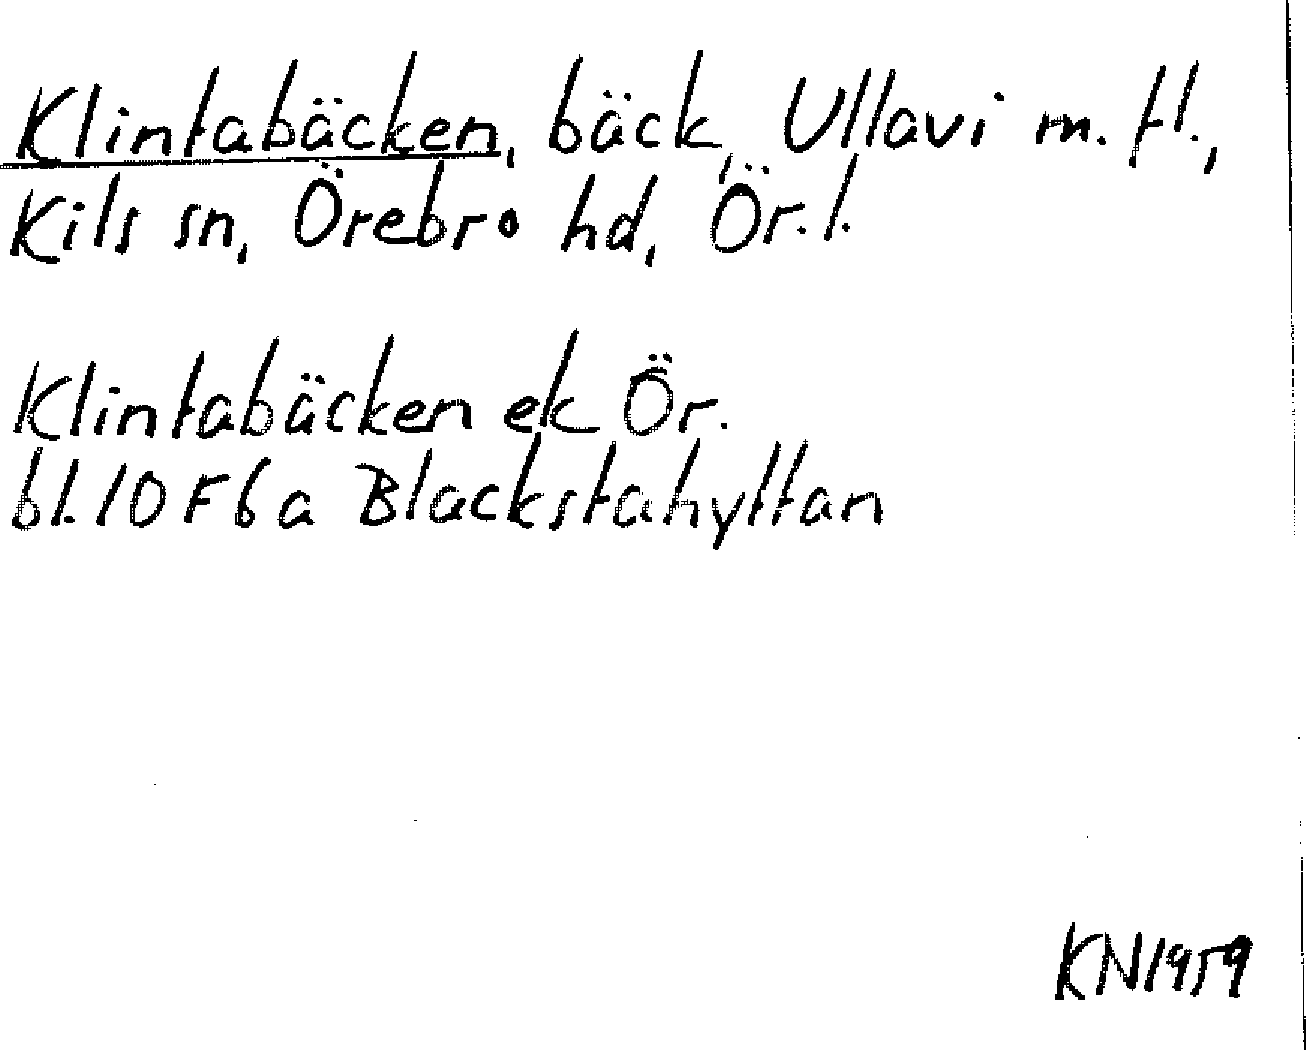 Klintabäcken, bäck, Ullavi m. fl.,
Kils sn, Örebro hd, Ör. l.
Klintabäcken ek Ör.
bl. 10 F 6 a Blackstahyttan
KN1959